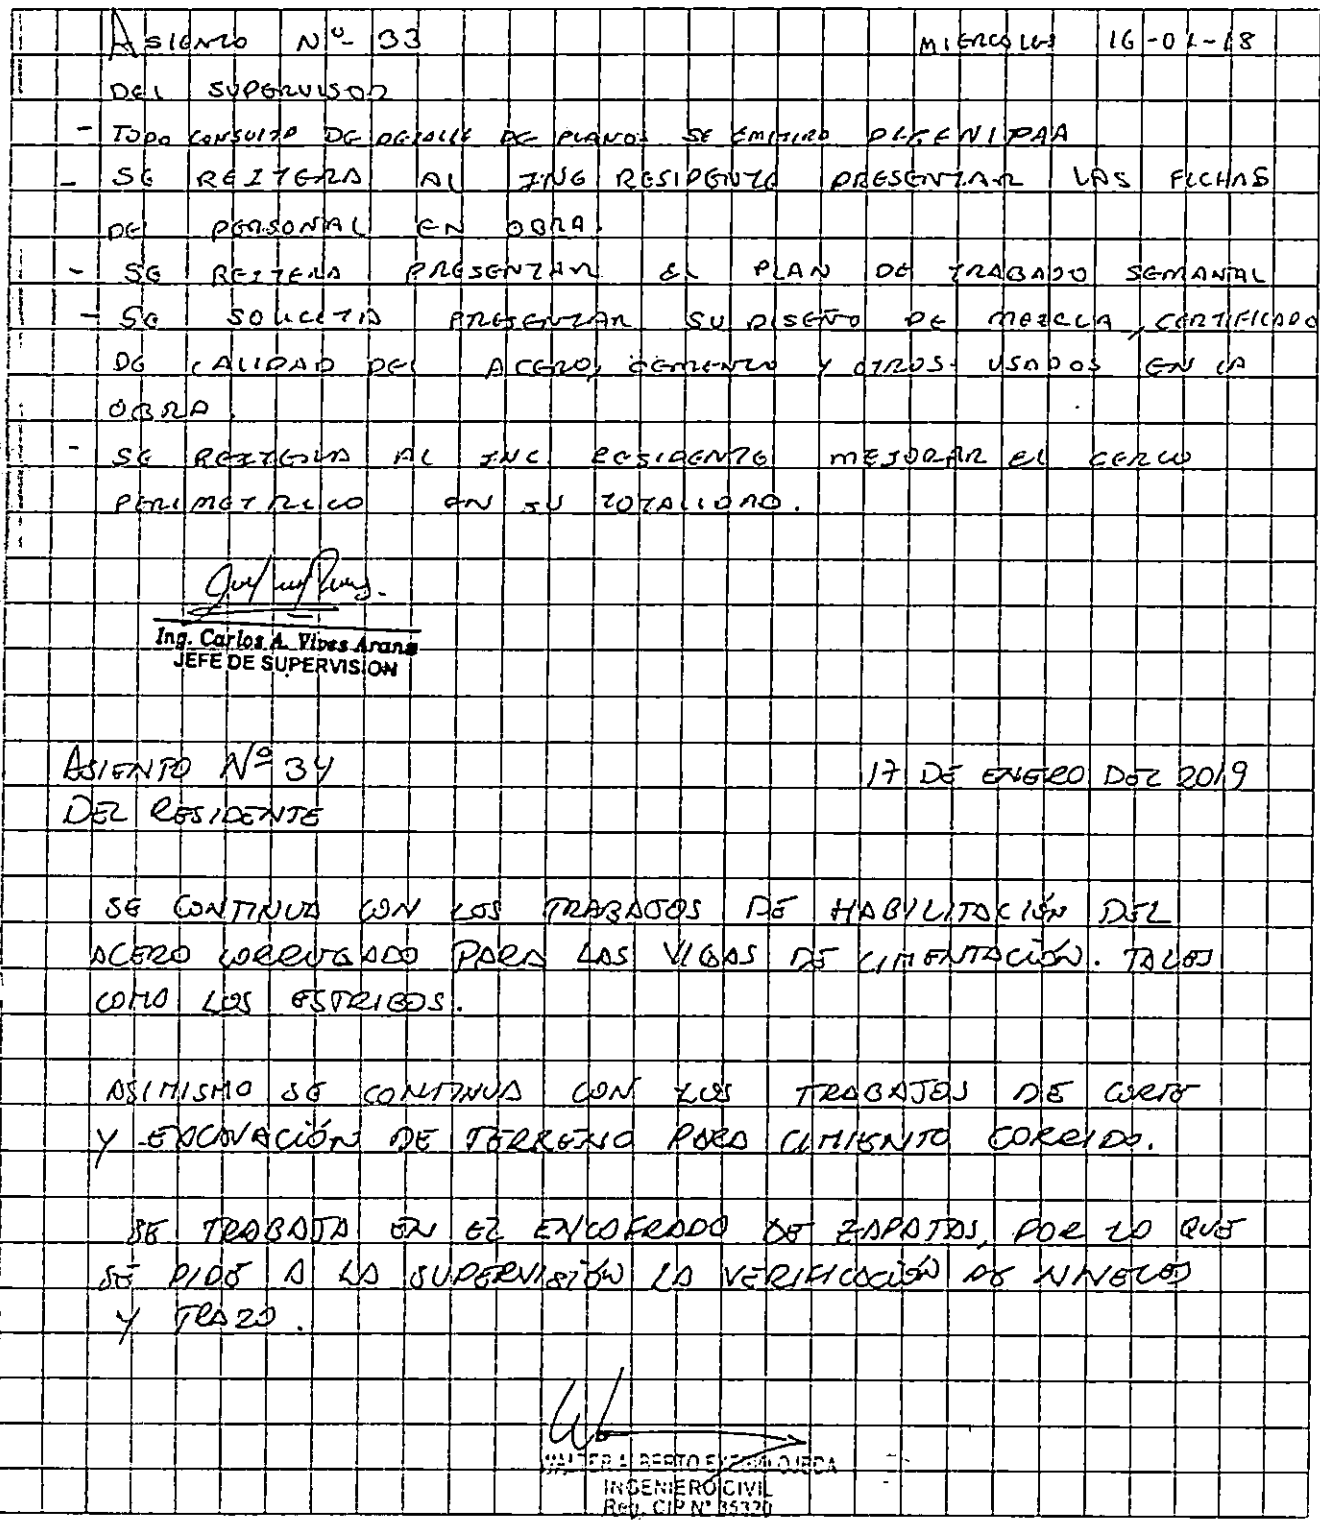 Asiento Nº- 33 MIERCOLES 16-01-18
DEL SUPERVISOR
- TODO CONSULTA DE DETALLE DE PLANOS SE EMITIRA
- SE REITERA AL ING RESIDENTE PRESENTAR LAS FICHAS
DE PERSONAL EN OBRA.
- SE REITERA PRESENTAR EL PLAN DE TRABAJO SEMANAL
- SE SOLICITA PRESENTAR SU DISEÑO DE MEZCLA, CERTIFICADO
DE CALIDAD DEL ACERO, CEMENTO Y OTROS USADOS EN LA
OBRA.
- SE REITERA AL ING RESIDENTE MEJORAR EL CERCO
PERIMETRICO EN SU TOTALIDAD.
Ing. Carlos A. Vives Arana
JEFE DE SUPERVISION
ASIENTO Nº 34 17 DE ENERO DEL 2019
DEL RESIDENTE
SE CONTINUA CON LOS TRABAJOS DE HABILITACIÓN DEL
ACERO CORRUGADO PARA LAS VIGAS DE CIMENTACIÓN. TALES
COMO LOS ESTRIBOS.
ASIMISMO SE CONTINUA CON LOS TRABAJOS DE CORTE
Y EXCAVACIÓN DE TERRENO PARA CIMIENTO CORRIDO.
SE TRABAJA EN EL ENCOFRADO DE ZAPATAS, POR LO QUE
SE PIDE A LA SUPERVISIÓN LA VERIFICACIÓN DE NIVELES
Y TRAZO.
WALTER ALBERTO OJEDA
INGENIERO CIVIL
Reg. CIP Nº 35320